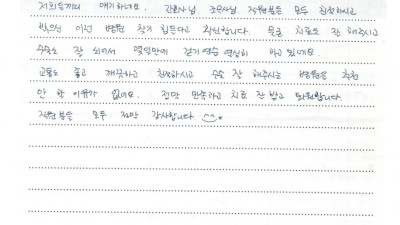 저희들끼리 얘기하네요. 간호사님 조무사님 직원분들 모두 친절하시고
이런 병원 찾기 힘든다고 확신합니다. 물론 치료도 잘 해주시고
수술도 잘 되어서 몇일만에 걷기 연습 열심히 하고 있네요
교통도 좋고 깨끗하고 친절하시고 수술 잘 해주시는 병원을 추천
안 할 이유가 없네요. 정말 만족하고 치료 잘 받고 퇴원합니다.
직원분들 모두 정말 감사합니다